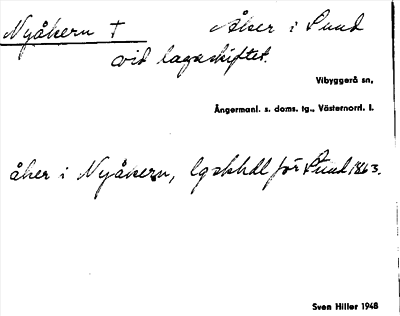 Nyåkern † Åker i Sund
vid lagaskiftet.
Vibyggerå sn,
Ångermanl. s. doms. tg., Västernorrl. l.
åker i Nyåkern, lgskhdl för Sund 1863.
Sven Hiller 1948